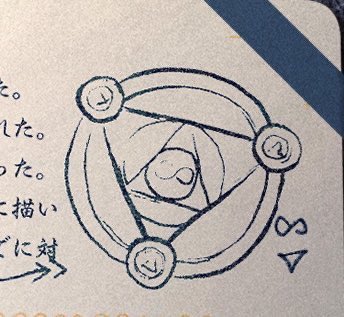 た。
れた。
った。
に描い
どに対
∞